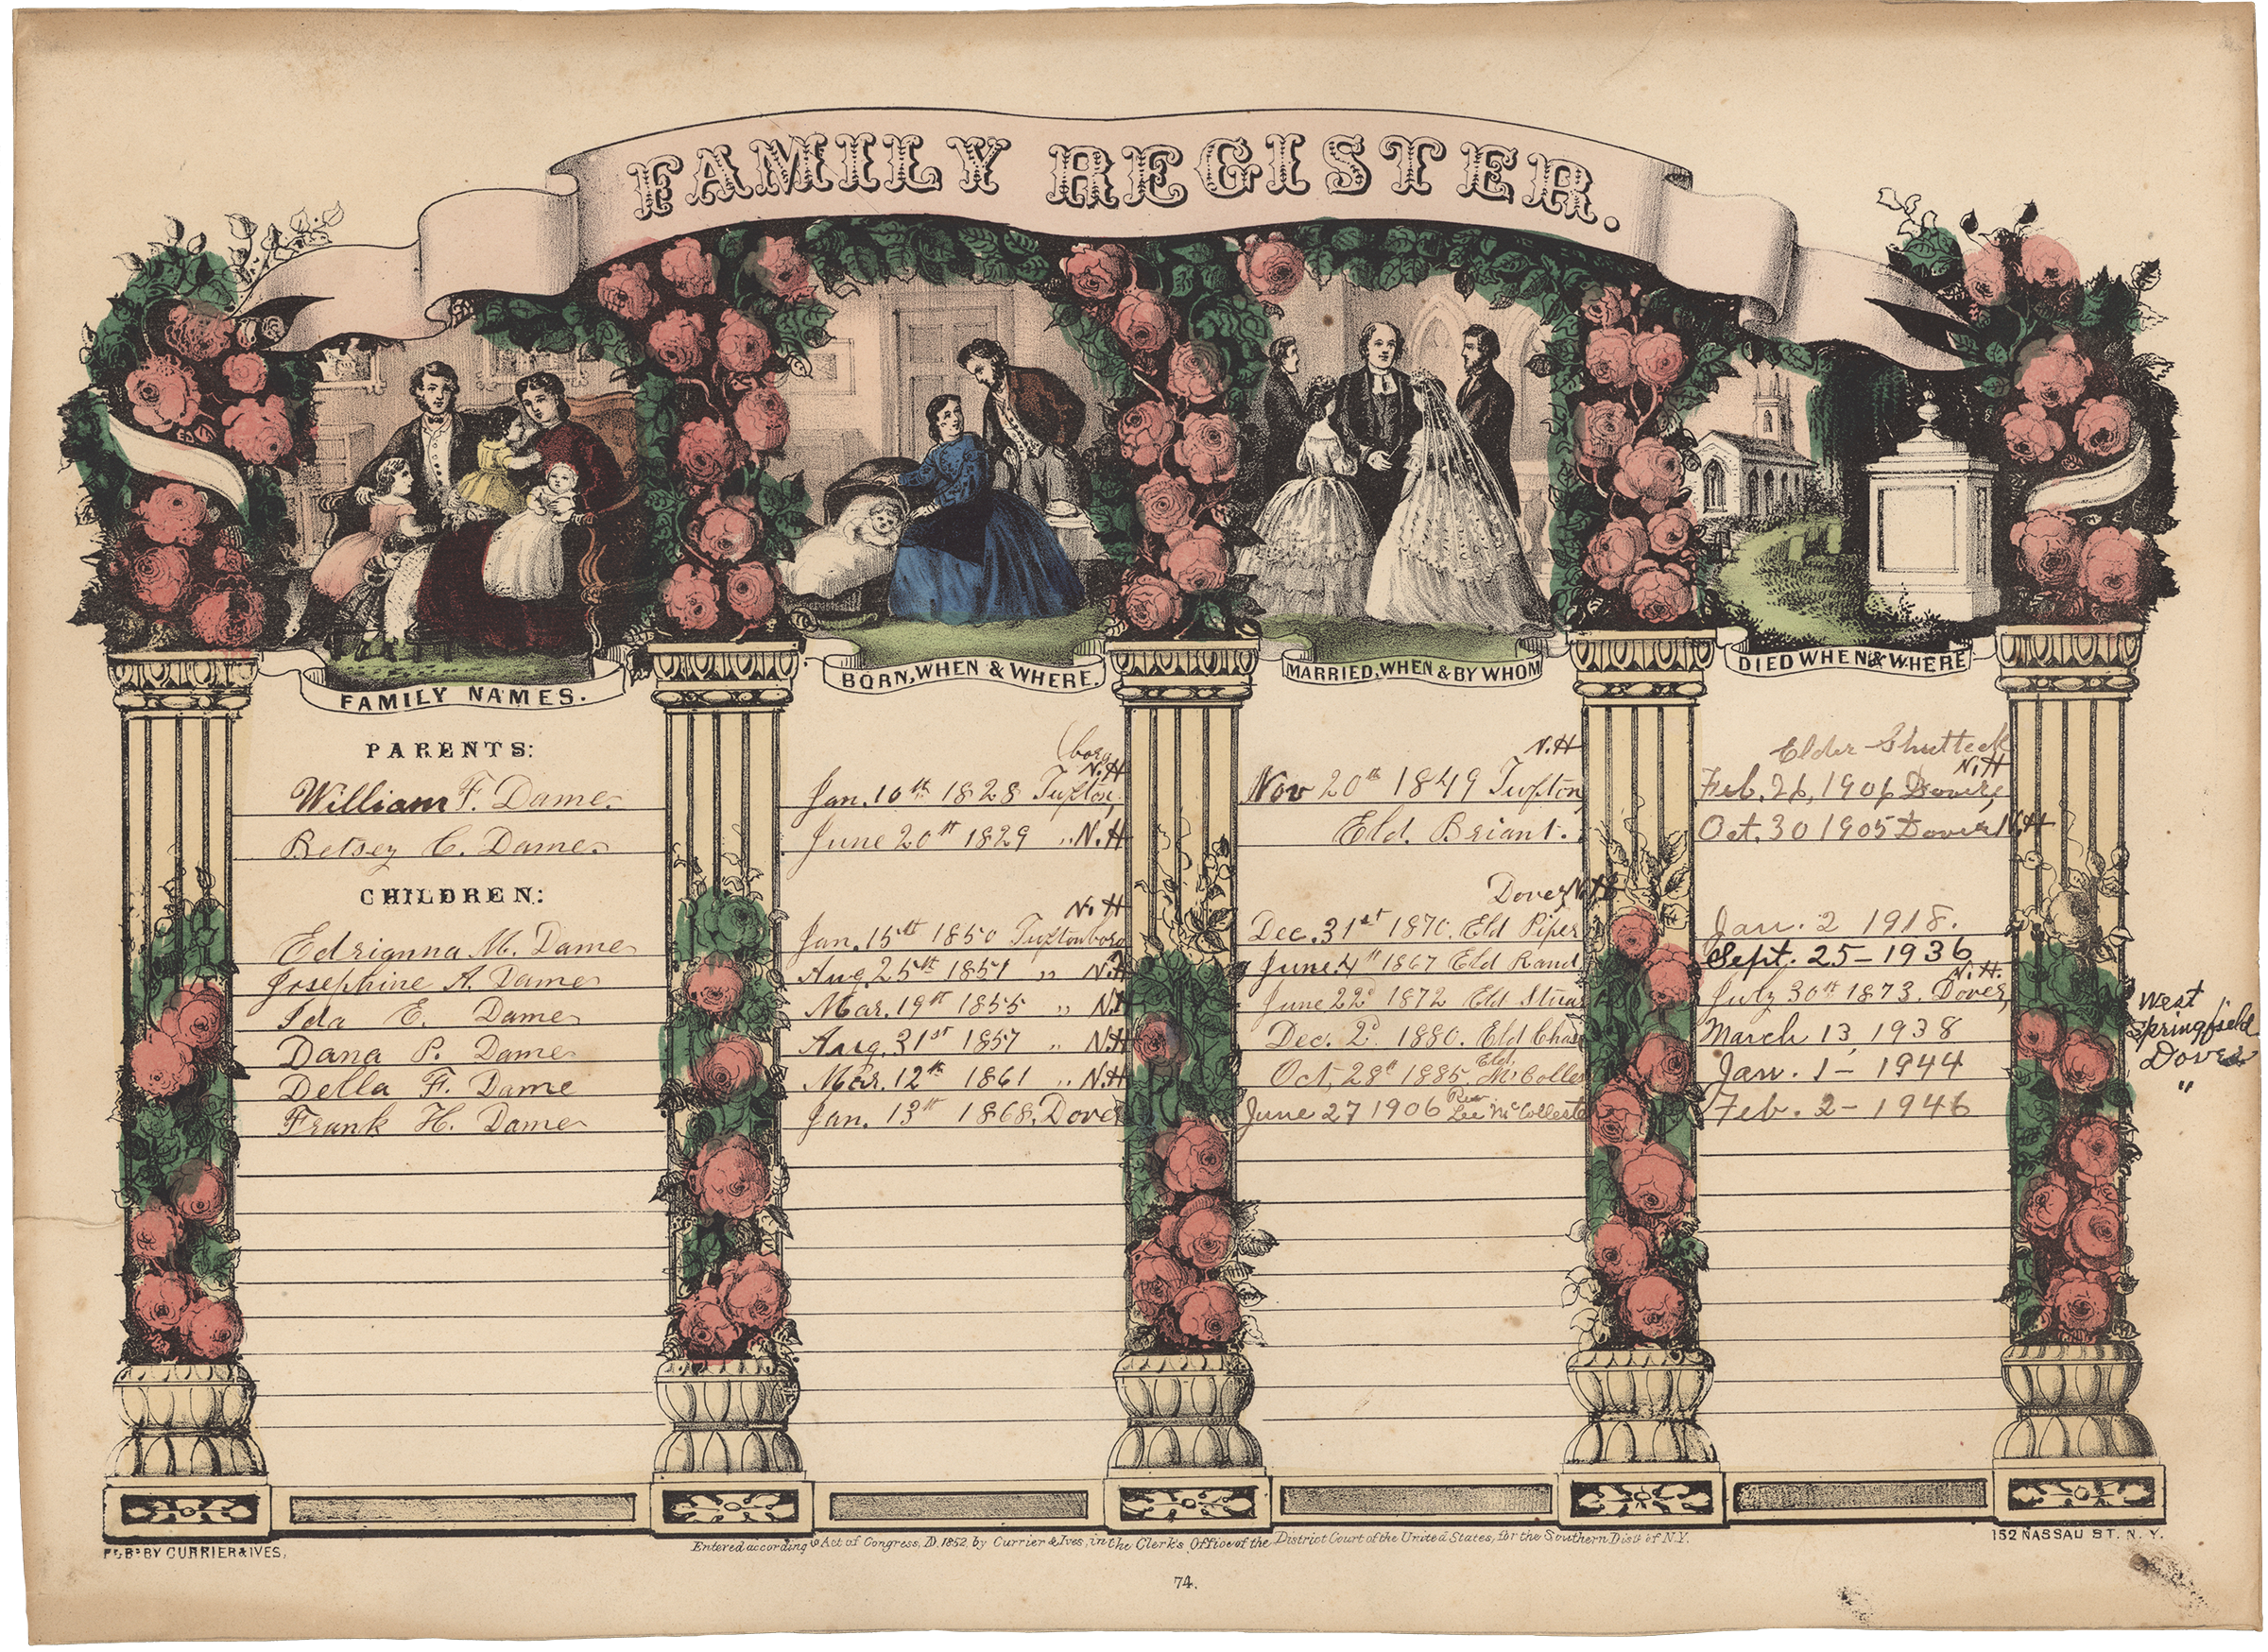 FAMILY REGISTER.
FAMILY NAMES.
BORN, WHEN & WHERE.
MARRIED, WHEN & BY WHOM
DIED WHEN & WHERE
PARENTS:
(boro
N.H
N.H
Elder
N.H
William F. Dame. Jan. 10th 1828 Tufton, Nov 20th 1849 Tufton Feb. 26, 1906 Dover,
Betsey C. Dame. June 20th 1829 " N.H Eld. Briant. Oct. 30 1905 Dover N.H
CHILDREN:
N.H
Dover N.H
Edrianna M. Dame Jan. 15th 1850 Tuftonboro Dec. 31st 1870. Eld Piper Jan. 2 1918.
Josephine A. Dame Aug. 25th 1851 " N.H June 4th 1867 Eld Rand Sept. 25-1936
N.H.
Ida E. Dame Mar. 19th 1855 " N.H June 22d 1872 Eld July 30th 1873. Dover, West
Springfield
Dana P. Dame Aug. 31st 1857 " N.H Dec. 2d 1880. Eld Chas March 13, 1938 Dover
Eld.
Della F. Dame Mar. 12th 1861 " N.H Oct. 28t 1885. McColles Jan. 1-1944 "
Rev
Frank H. Dame Jan. 13th 1868. Dover June 27 1906 Lee McCollest Feb. 2-1946
PUBD BY CURRIER & IVES,
Entered according to Act of Congress, AD. 1852, by Currier & Ives, in the Clerk's Office of the District Court of the United States, for the Southern Distt of N.Y.
152 NASSAU ST. N. Y.
74.